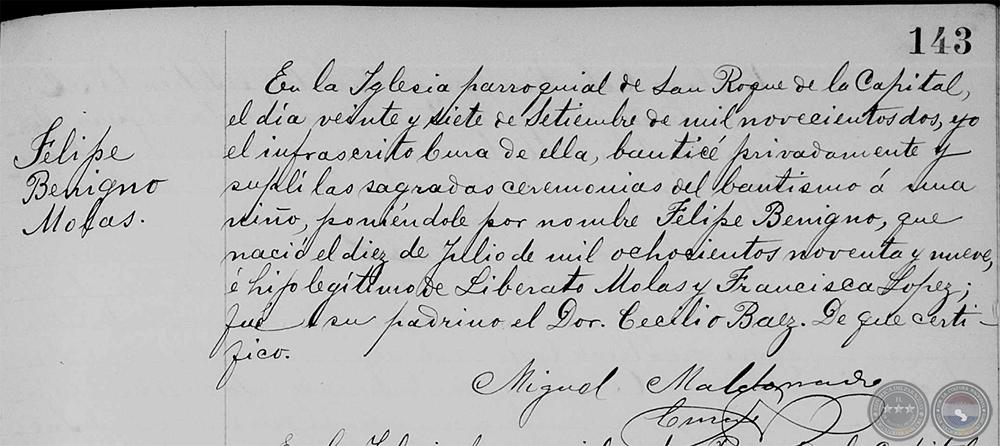 143
Felipe
Benigno
Molas.
En la Iglesia parroquial de San Roque de la Capital,
el día veinte y siete de Setiembre de mil novecientos dos, yo
el infrascrito Cura de ella, bauticé privadamente y
suplí las sagradas ceremonias del bautismo á una
niño, poniéndole por nombre Felipe Benigno, que
nació el diez de Julio de mil ochocientos noventa y nueve,
é hijo legítimo de Liberato Molas y Francisca Lopez;
fué su padrino el Dor. Cecilio Baez. De que certi-
fico.
Miguel Maldonado